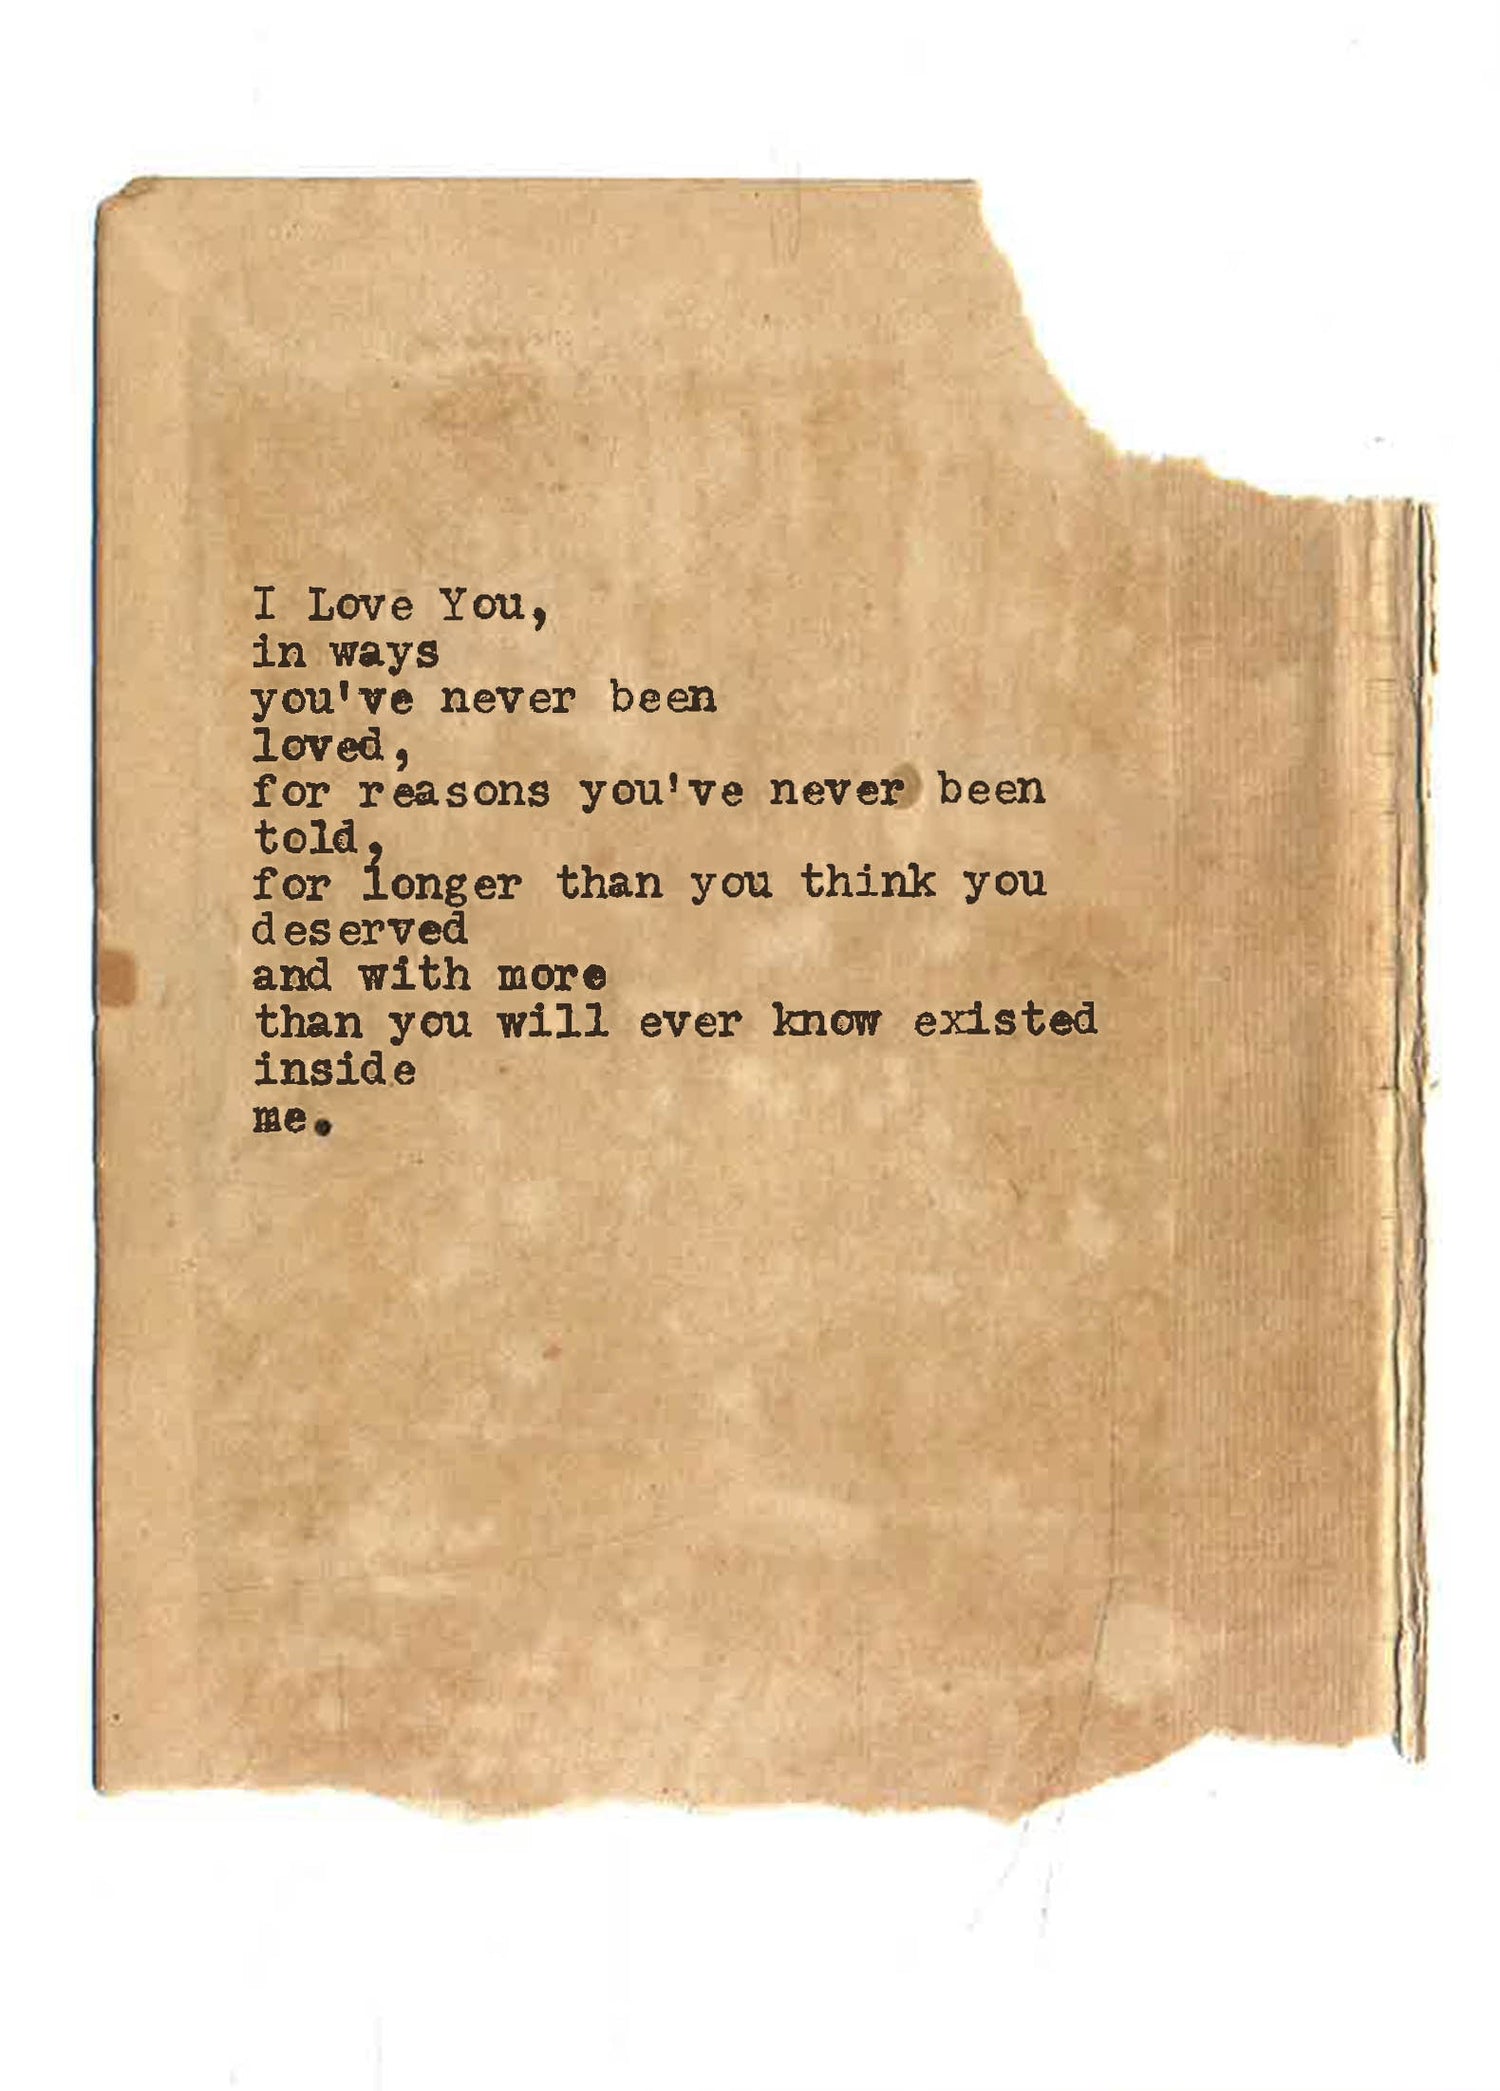 I Love You,
in ways
you've never been
loved,
for reasons you've never been
told,
for longer than you think you
deserved
and with more
than you will ever know existed
inside
me.